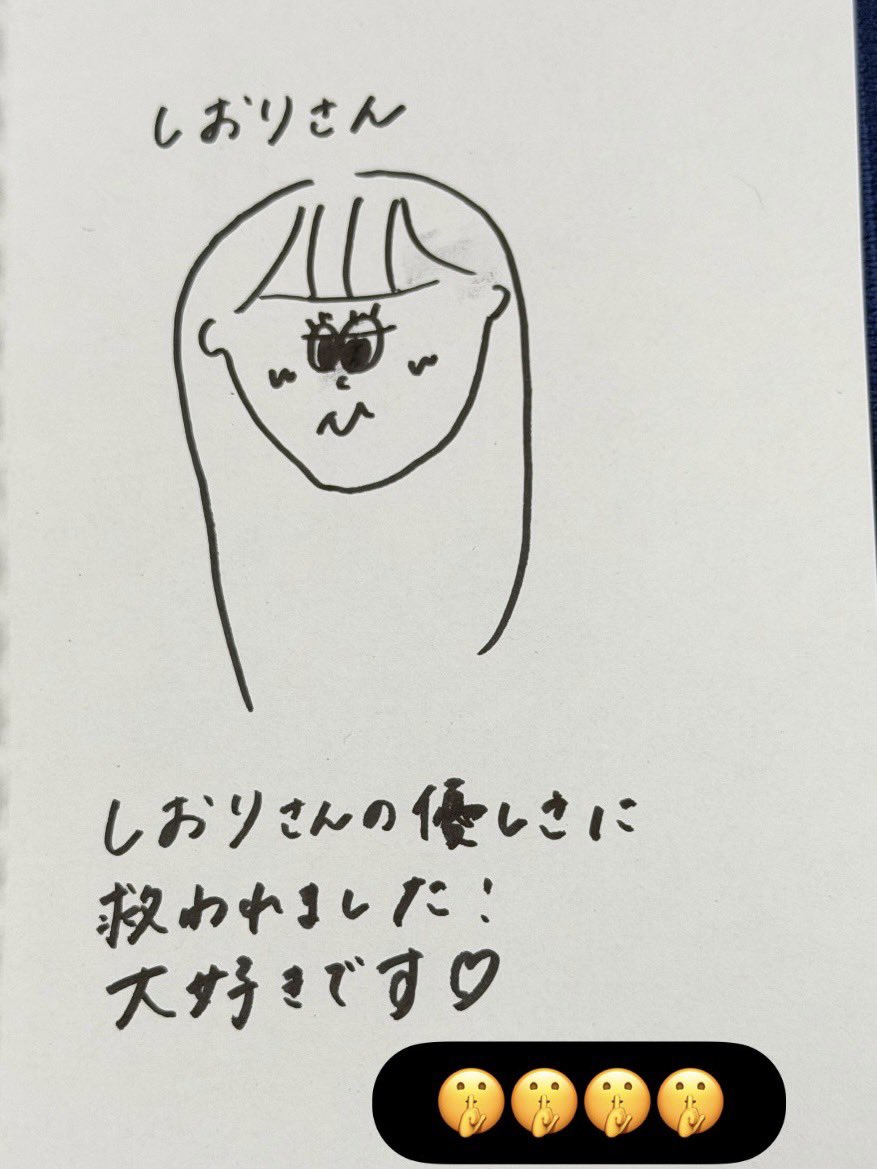 しおりさん
しおりさんの優しさに
救われました！
大好きです♡
🤫🤫🤫🤫